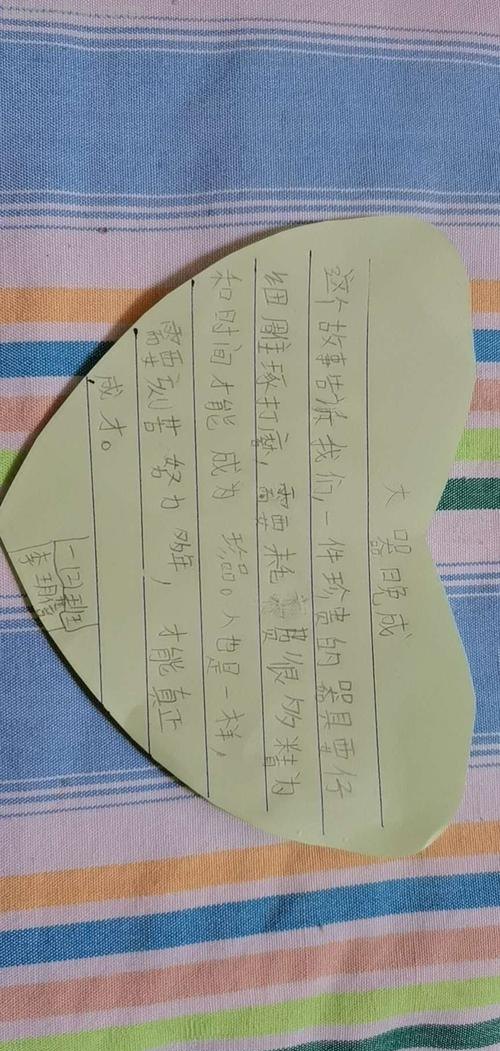 大器晚成
这个故事告诉我们,一件珍贵的器具要仔
细雕琢打磨,需要耗费很多精力
和时间才能成为珍品。人也是一样,
需要刻苦努力 ,才能真正
成才。
一班
李